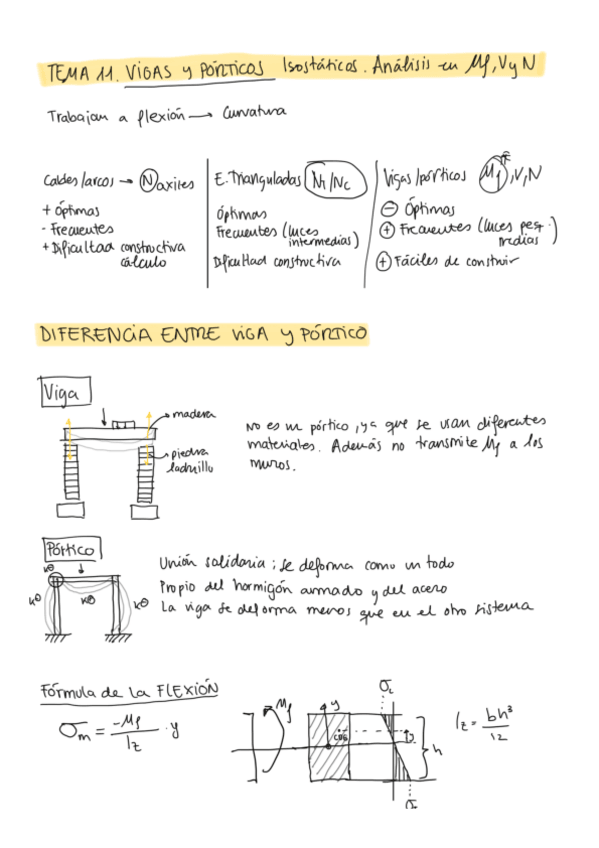 TEMA 11. VIGAS y PÓRTICOS Isostáticos. Análisis en Mf, V y N
Trabajan a flexión → Curvatura
Cables/arcos → N axiles
+ Óptimas
- Frecuentes
+ Dificultad constructiva
cálculo
E. Trianguladas Nt/Nc
Óptimas
Frecuentes (luces
intermedias)
Dificultad constructiva
Vigas/pórticos Mf, V, N
- Óptimas
+ Frecuentes (luces peq.
medias)
+ Fáciles de construir
DIFERENCIA ENTRE VIGA y PÓRTICO
Viga
madera
piedra
ladrillo
No es un pórtico, ya que se usan diferentes
materiales. Además no transmite Mf a los
muros.
Pórtico
Unión solidaria; se deforma como un todo
Propio del hormigón armado y del acero
La viga se deforma menos que en el otro sistema
Fórmula de la FLEXIÓN
σm = -Mf / Iz · y
Mf
y
CDG
y
σc
h
Iz = bh³ / 12